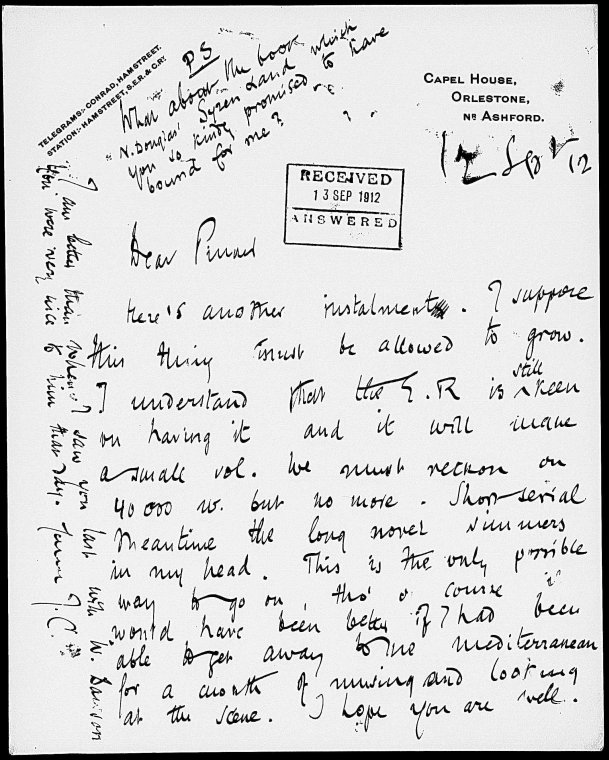 TELEGRAMS:- CONRAD, HAMSTREET.
STATION:- HAMSTREET, S.E.R. & C.RY.
CAPEL HOUSE,
ORLESTONE,
NR ASHFORD.
12 Sept 12
PS
What about the book
N. Douglas' Syren Land which
you so kindly promised to have
bound for me?
RECEIVED
13 SEP 1912
ANSWERED
Dear Pinker
Here's another instalment. I suppose
this thing must be allowed to grow.
I understand that the E.R is still keen
on having it and it will make
a small vol. We must reckon on
40 000 w. but no more. Short serial
Meantime the long novel simmers
in my head. This is the only possible
way to go on, tho' o course it
would have been better if I had been
able to get away to the mediterranean
for a month of musing and looking
at the scene. I hope you are well.
I am better than when I saw you last with W. Davison
You were very nice to him that day. Yours J.C.